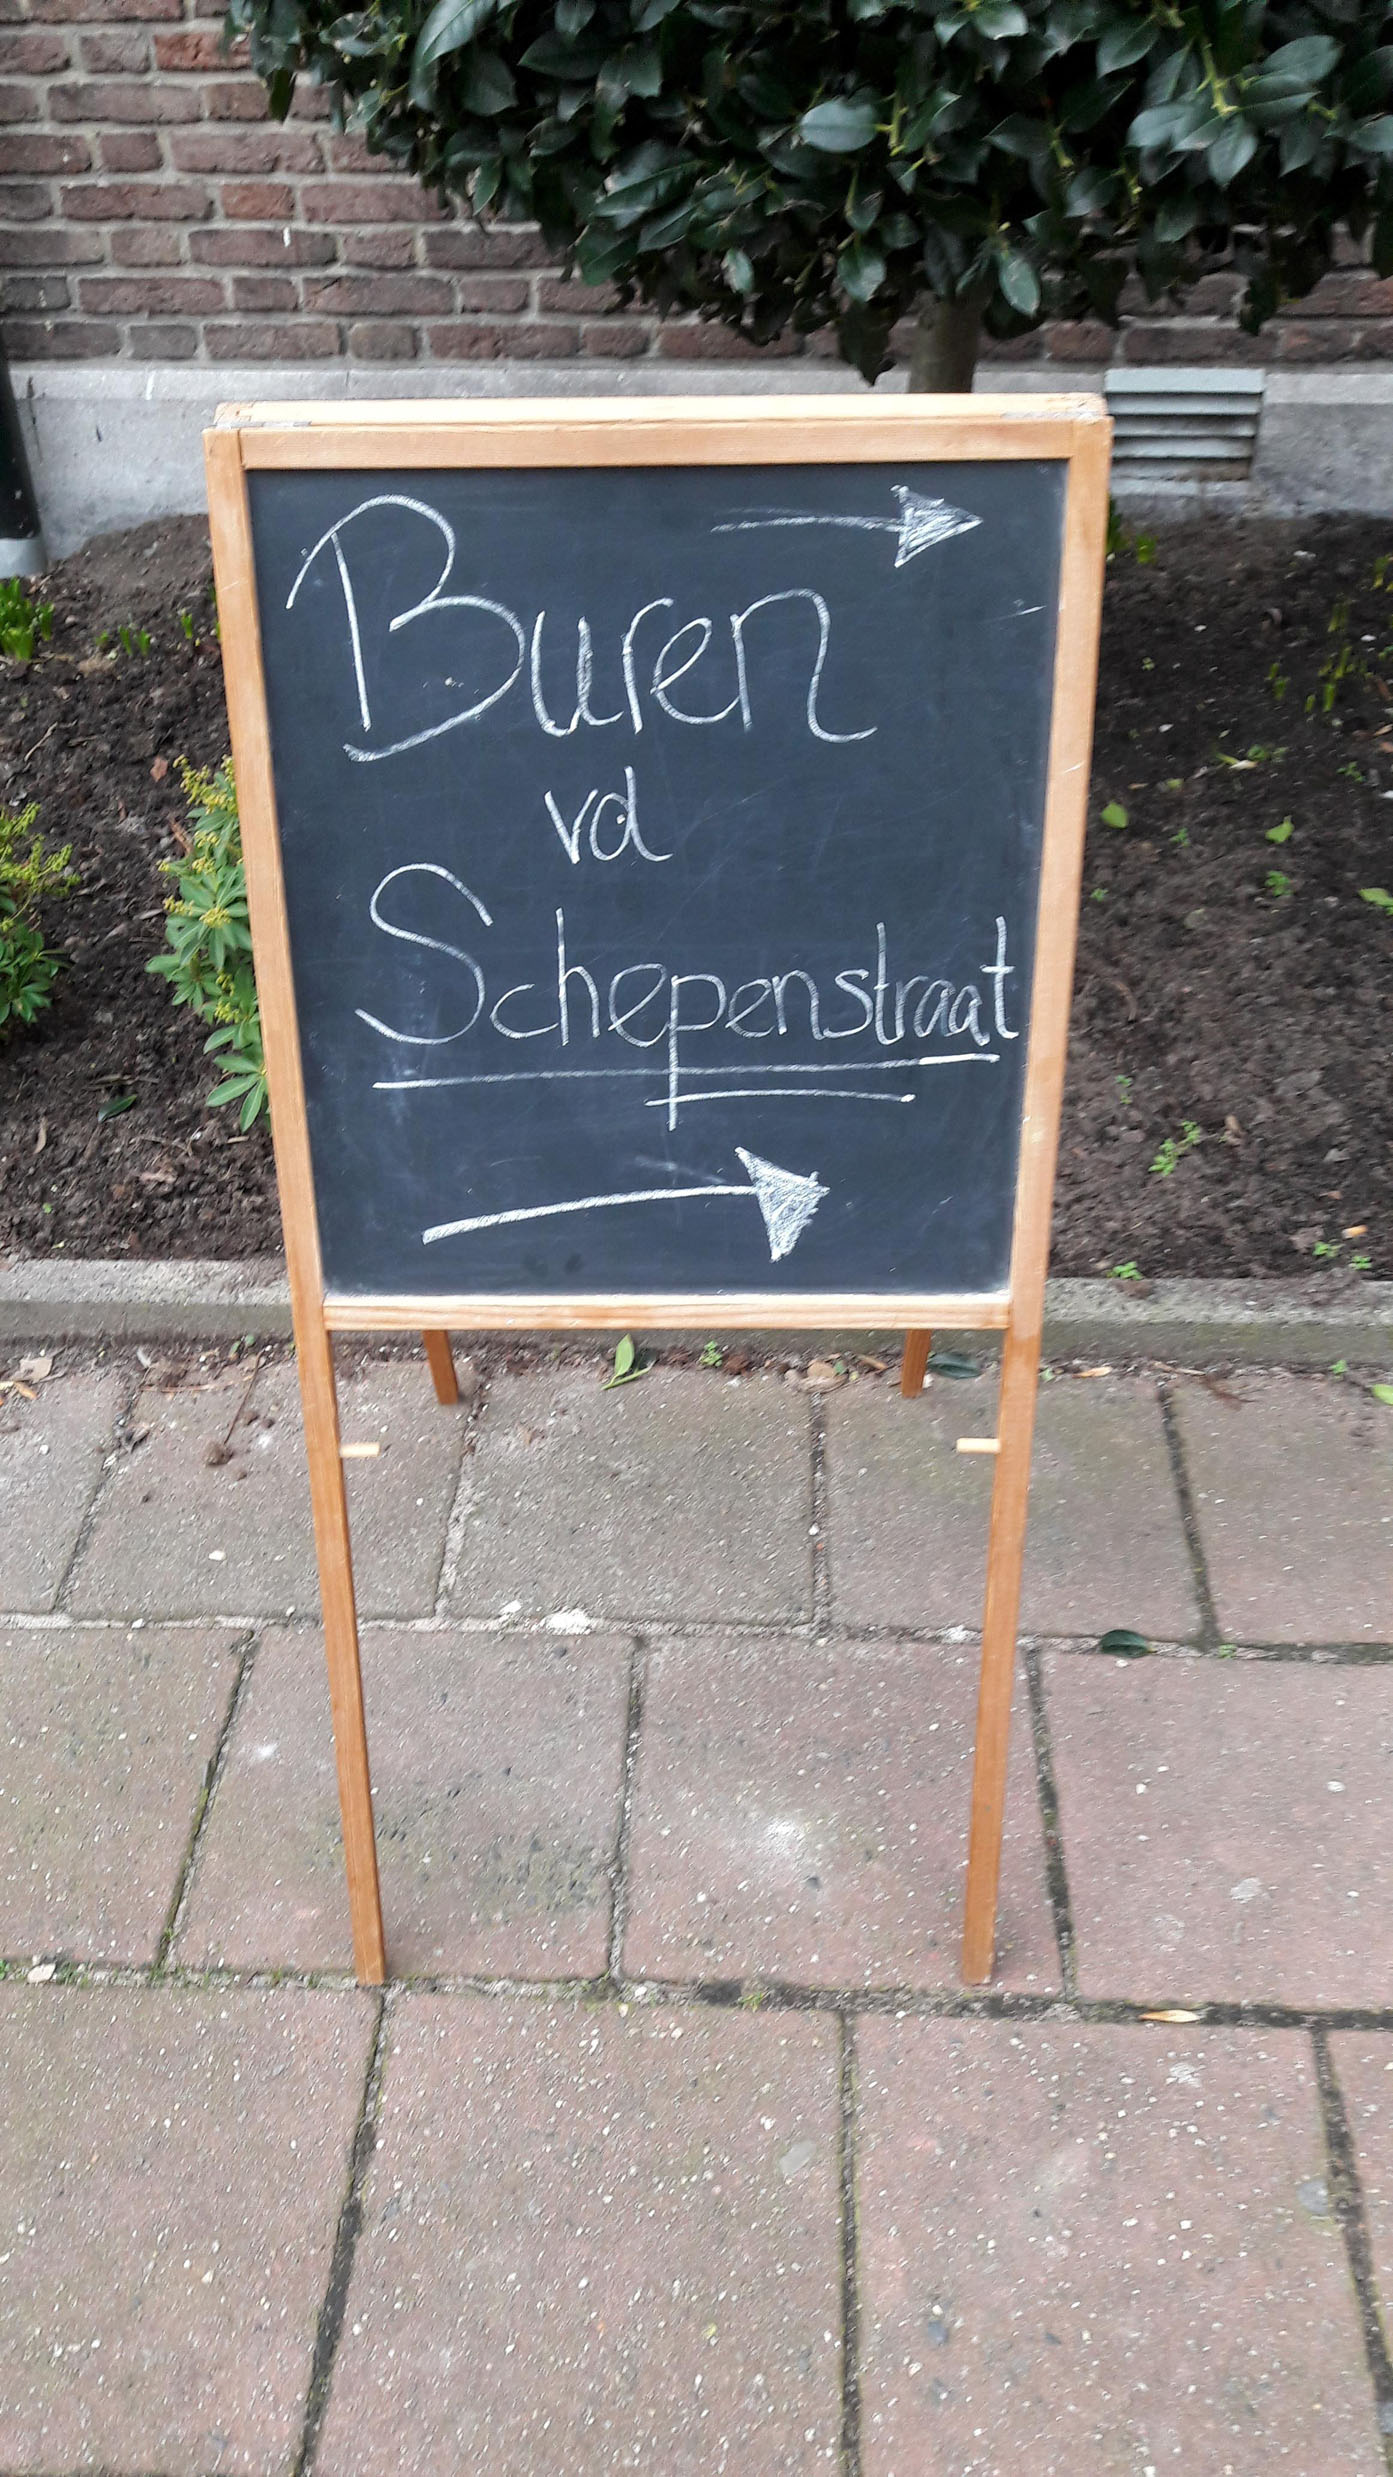 Buren
vd
Schepenstraat